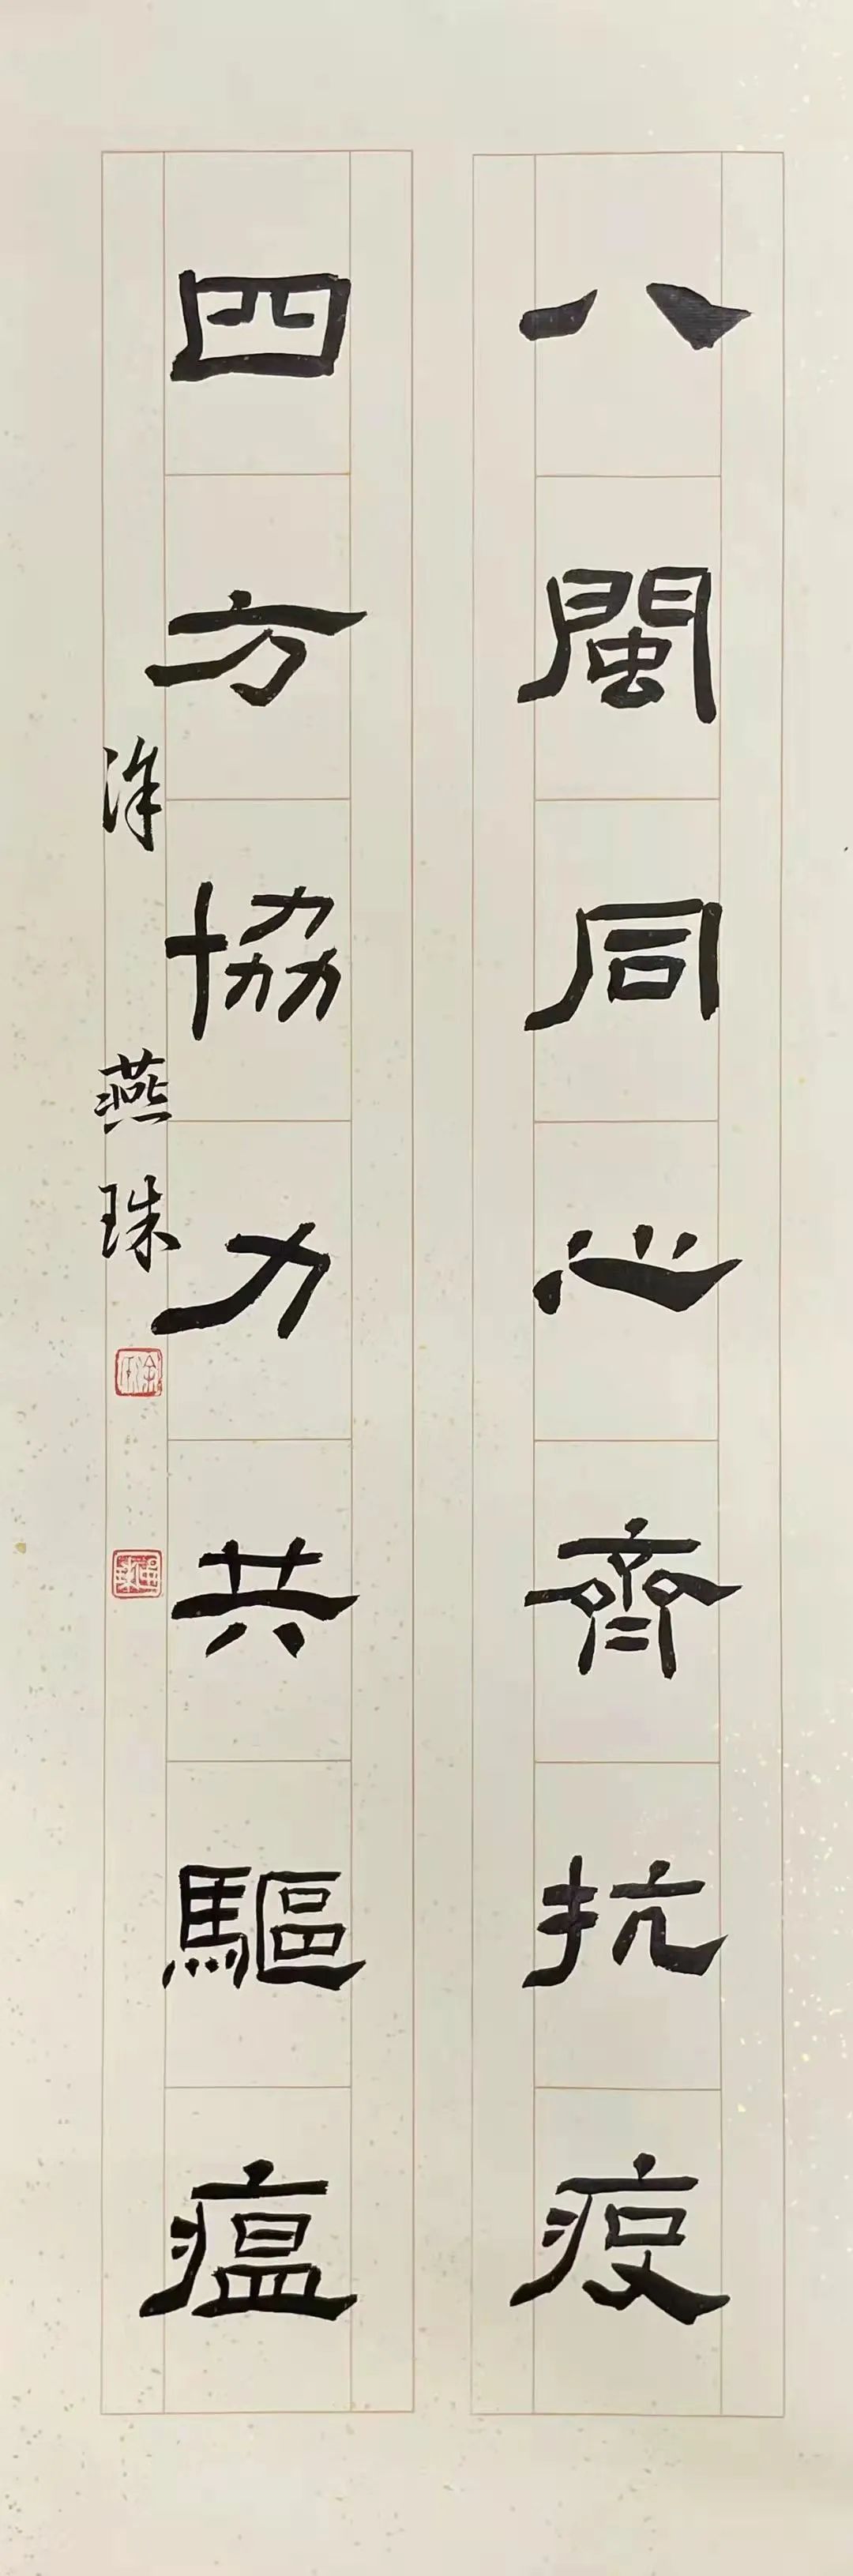 八閩同心齊抗疫
四方協力共驅瘟
涂燕珠